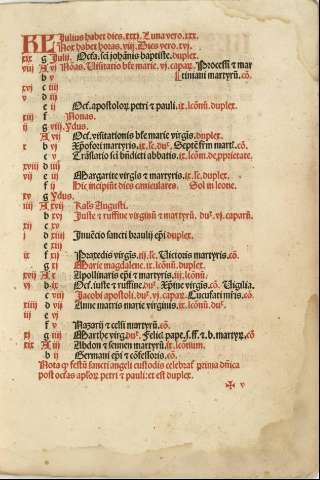 KL Julius habet dies .xxxj. Luna vero .xxx.
Nox habet horas .viij. Dies vero .xvj.
xix g Julij. Octa. sci johānis baptiste. duplex.
viij A vj Nōas. Visitatio bte marie. vj. capar. Processi τ mar
b v tiniani martyrū. cō.
xvj c iiij
v d iij
e ij Oct. apostoloꝝ petri τ pauli. ix. lcōnū. duplex.
xiij f Nonas.
ij g viij. ydus.
A vij Oct. visitationis bte marie virgis. duplex.
x b vj Xpofori martyris. ix. lc. du. Septē frm mart. cō.
c v Trāslatio sci bñdicti abbatis. ix. lcōm. de proprietate.
xviij d iiij
vij e iij Margarite virgis τ martyris. ix. lc. duplex.
f ij Hic incipiūt dies caniculares. Sol in leone.
xv g ydus.
iiij A xvij Kal's Augusti.
b xvj Juste τ ruffine virginū τ martyrū. du. vj. caparū.
xij c xv
j d xiiij
e xiij Inuētio sancti braulij epi duplex.
f xij
ix g xij Praxedis virgis. iij. lc. Victoris martyris. cō.
g xj Marie magdalene. ix. lcōnū. duplex.
xvij A x Apollinaris epi τ martyris. iij. lcōnū.
vj b ix Oct. iuste τ ruffine. du. Xpine virgis. cō. Vigilia.
c viij Jacobi apostoli. du. vj. capar. Cucufati mris. cō.
xiiij d vij Anne matris marie virginis. du.
iij e vj
f v Nazarij τ celsi martyrū. cō.
xj g iiij Marthe virg. du. Felic. pape. s. ff. τ b. martyꝝ. cō
xix A iij Abdon τ sennen martyrū. ix. lcōnium.
b ij Germani epi τ cōfessoris. cō.
Nota ꝙ festū sancti angeli custodis celebrat' prima dñica
post octas apłoꝝ petri τ pauli: et est duplex.
✠ v